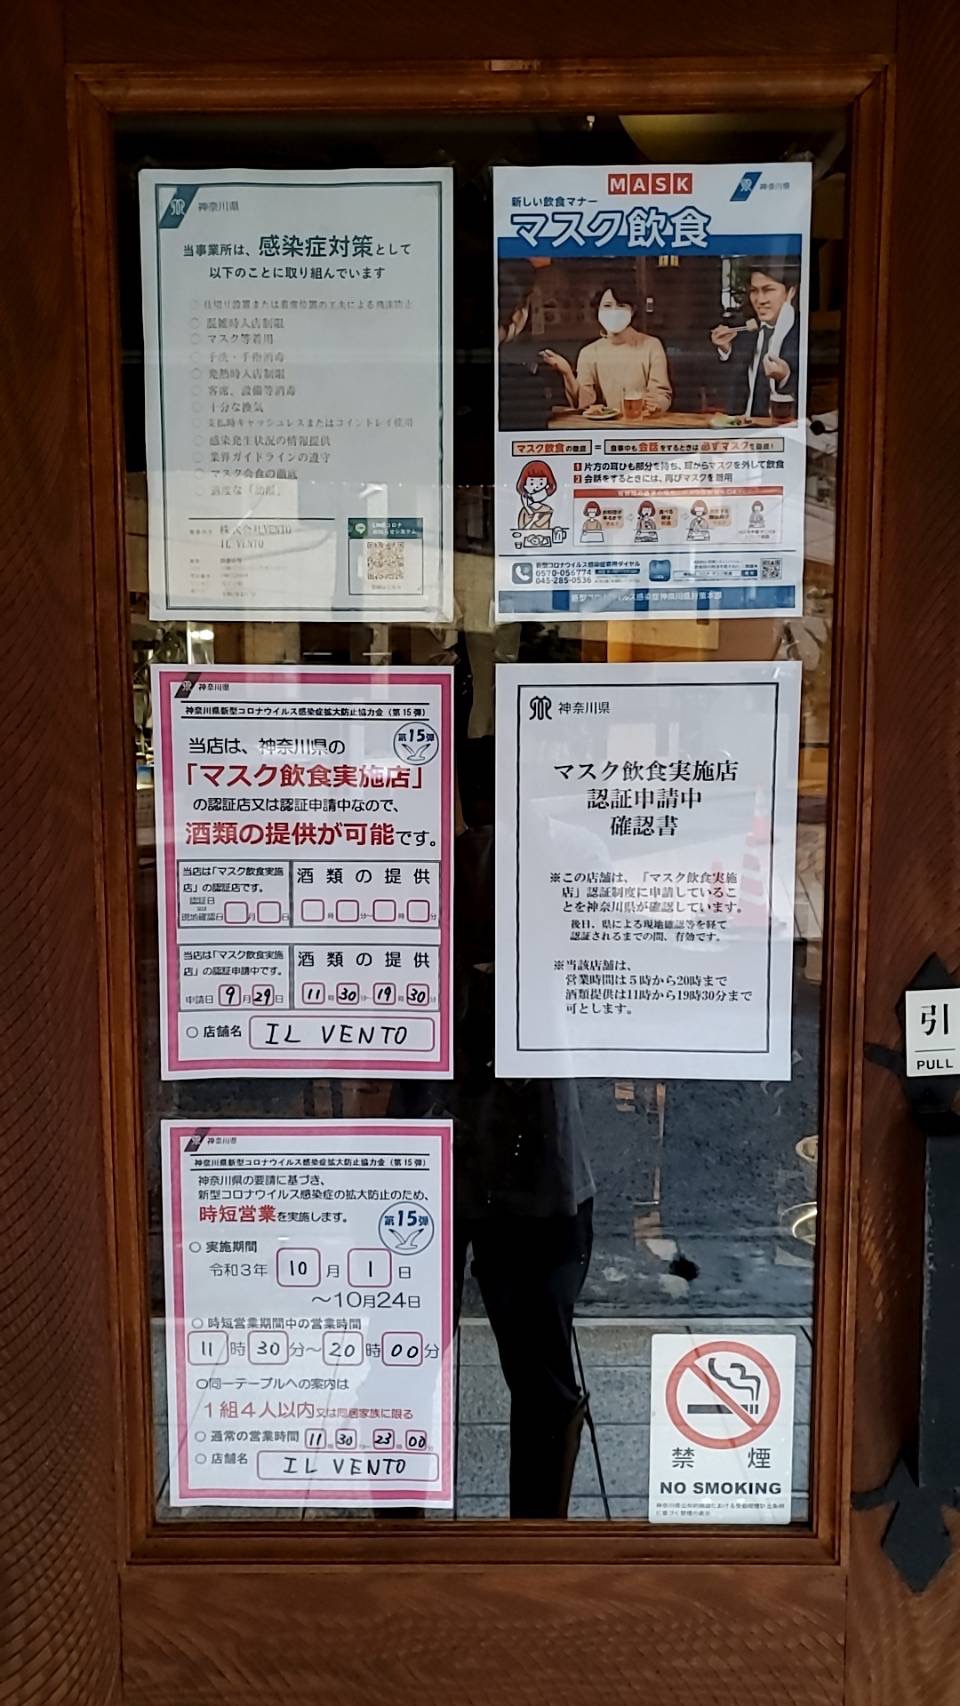 神奈川県
当事業所は、感染症対策として
以下のことに取り組んでいます
仕切り設置または着席位置の工夫による飛沫防止
混雑時入店制限
マスク等着用
手洗・手指消毒
発熱時入店制限
客席、設備等消毒
十分な換気
支払時キャッシュレスまたはコイントレイ使用
感染発生状況の情報提供
業界ガイドラインの遵守
マスク会食の徹底
株式会社VENTO
IL VENTO
LINEコロナ
MASK
神奈川県
新しい飲食マナー
マスク飲食
マスク飲食の徹底 = 食事中も会話をするときは必ずマスクを着用!
1 片方の耳ひも部分を持ち、耳からマスクを外して飲食
2 会話をするときには、再びマスクを着用
新型コロナウイルス感染症専用ダイヤル
0570-056774
045-285-0536
新型コロナウイルス感染症神奈川県対策本部
神奈川県
神奈川県新型コロナウイルス感染症拡大防止協力金（第15弾）
第15弾
当店は、神奈川県の
「マスク飲食実施店」
の認証店又は認証申請中なので、
酒類の提供が可能です。
当店は「マスク飲食実施店」の認証店です。
認証日
現地確認日 月 日
酒類の提供
時 分～ 時 分
当店は「マスク飲食実施店」の認証申請中です。
申請日 9月29日
酒類の提供
11時30分～19時30分
○店舗名 IL VENTO
神奈川県
マスク飲食実施店
認証申請中
確認書
※この店舗は、「マスク飲食実施
店」認証制度に申請しているこ
とを神奈川県が確認しています。
後日、県による現地確認等を経て
認証されるまでの間、有効です。
※当該店舗は、
営業時間は5時から20時まで
酒類提供は11時から19時30分まで
可とします。
引
PULL
神奈川県
神奈川県新型コロナウイルス感染症拡大防止協力金（第15弾）
神奈川県の要請に基づき、
新型コロナウイルス感染症の拡大防止のため、
時短営業を実施します。
第15弾
○実施期間
令和3年 10月1日
～10月24日
○時短営業期間中の営業時間
11時30分～20時00分
○同一テーブルへの案内は
1組4人以内又は同居家族に限る
○通常の営業時間 11時30分～23時00分
○店舗名 IL VENTO
禁 煙
NO SMOKING